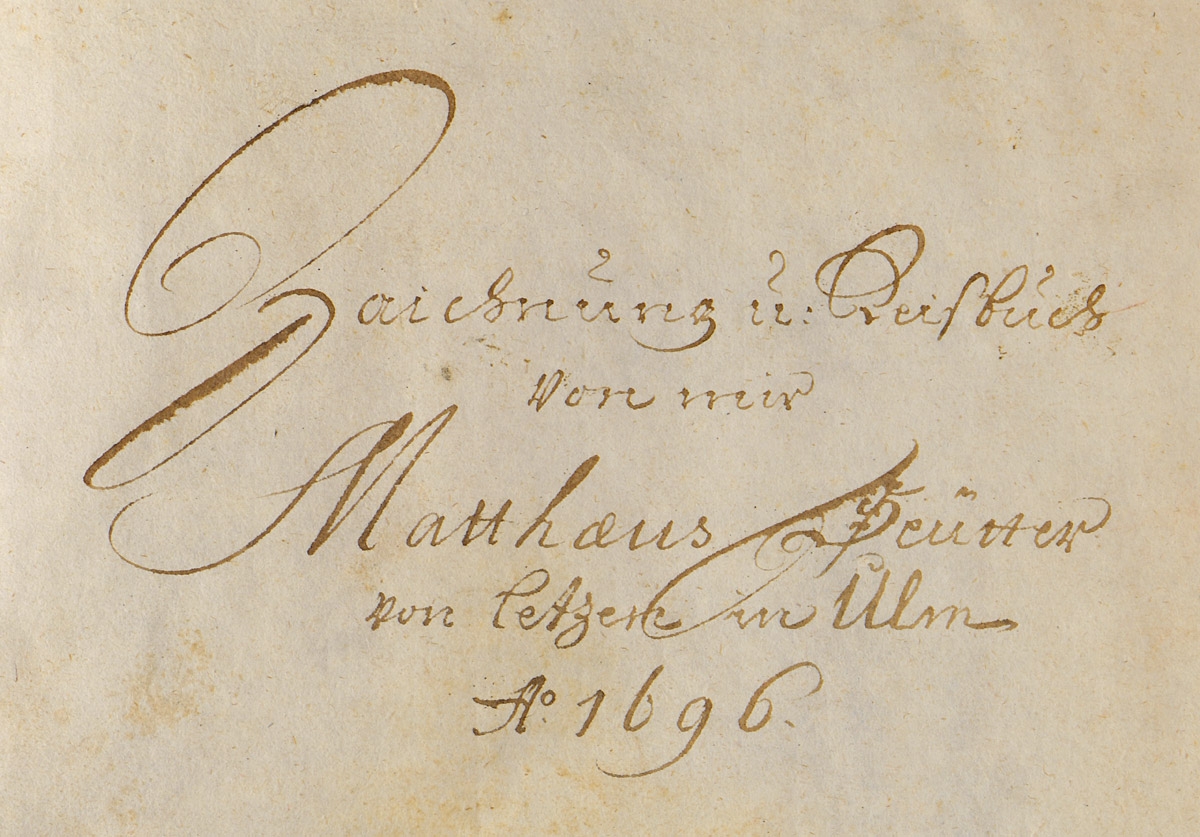 Zaichnung u: Reisbuch
von mir
Matthæus Beütter
von letzem in Ulm
Aº. 1696.